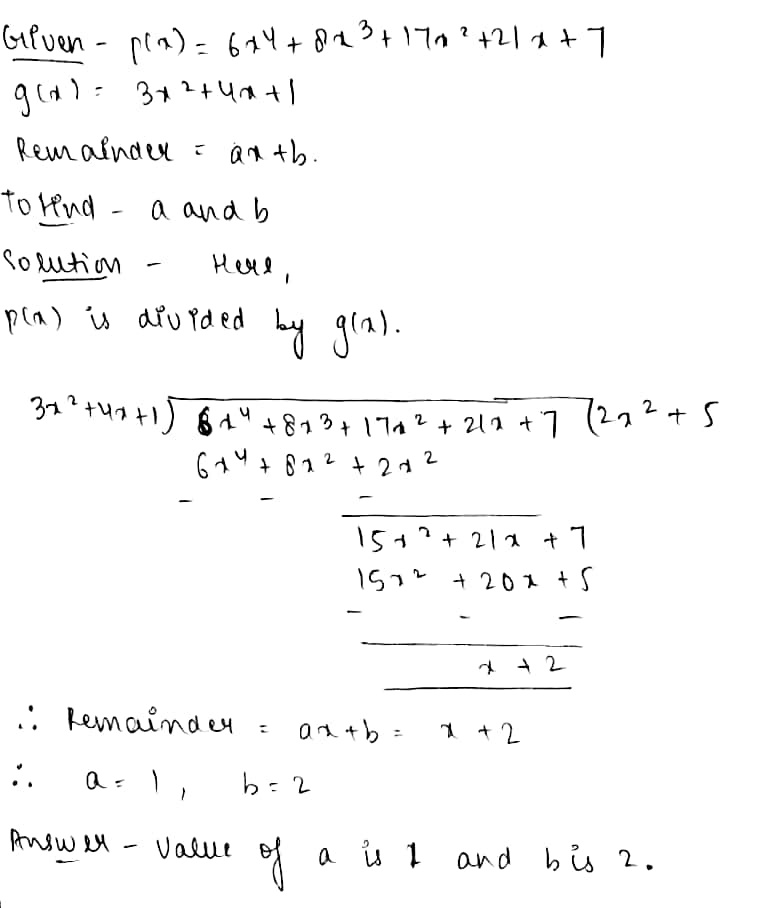 Given - p(x) = 6x4 + 8x3 + 17x2 + 21x + 7
g(x) = 3x2 + 4x + 1
Remainder = ax + b.
To find - a and b
Solution - Here,
p(x) is divided by g(x).
3x2 + 4x + 1) 6x4 + 8x3 + 17x2 + 21x + 7 (2x2 + 5
6x4 + 8x2 + 2x2
- - -
15x2 + 21x + 7
15x2 + 20x + 5
- - -
x + 2
∴ Remainder = ax + b = x + 2
∴ a = 1, b = 2
Answer - Value of a is 1 and b is 2.